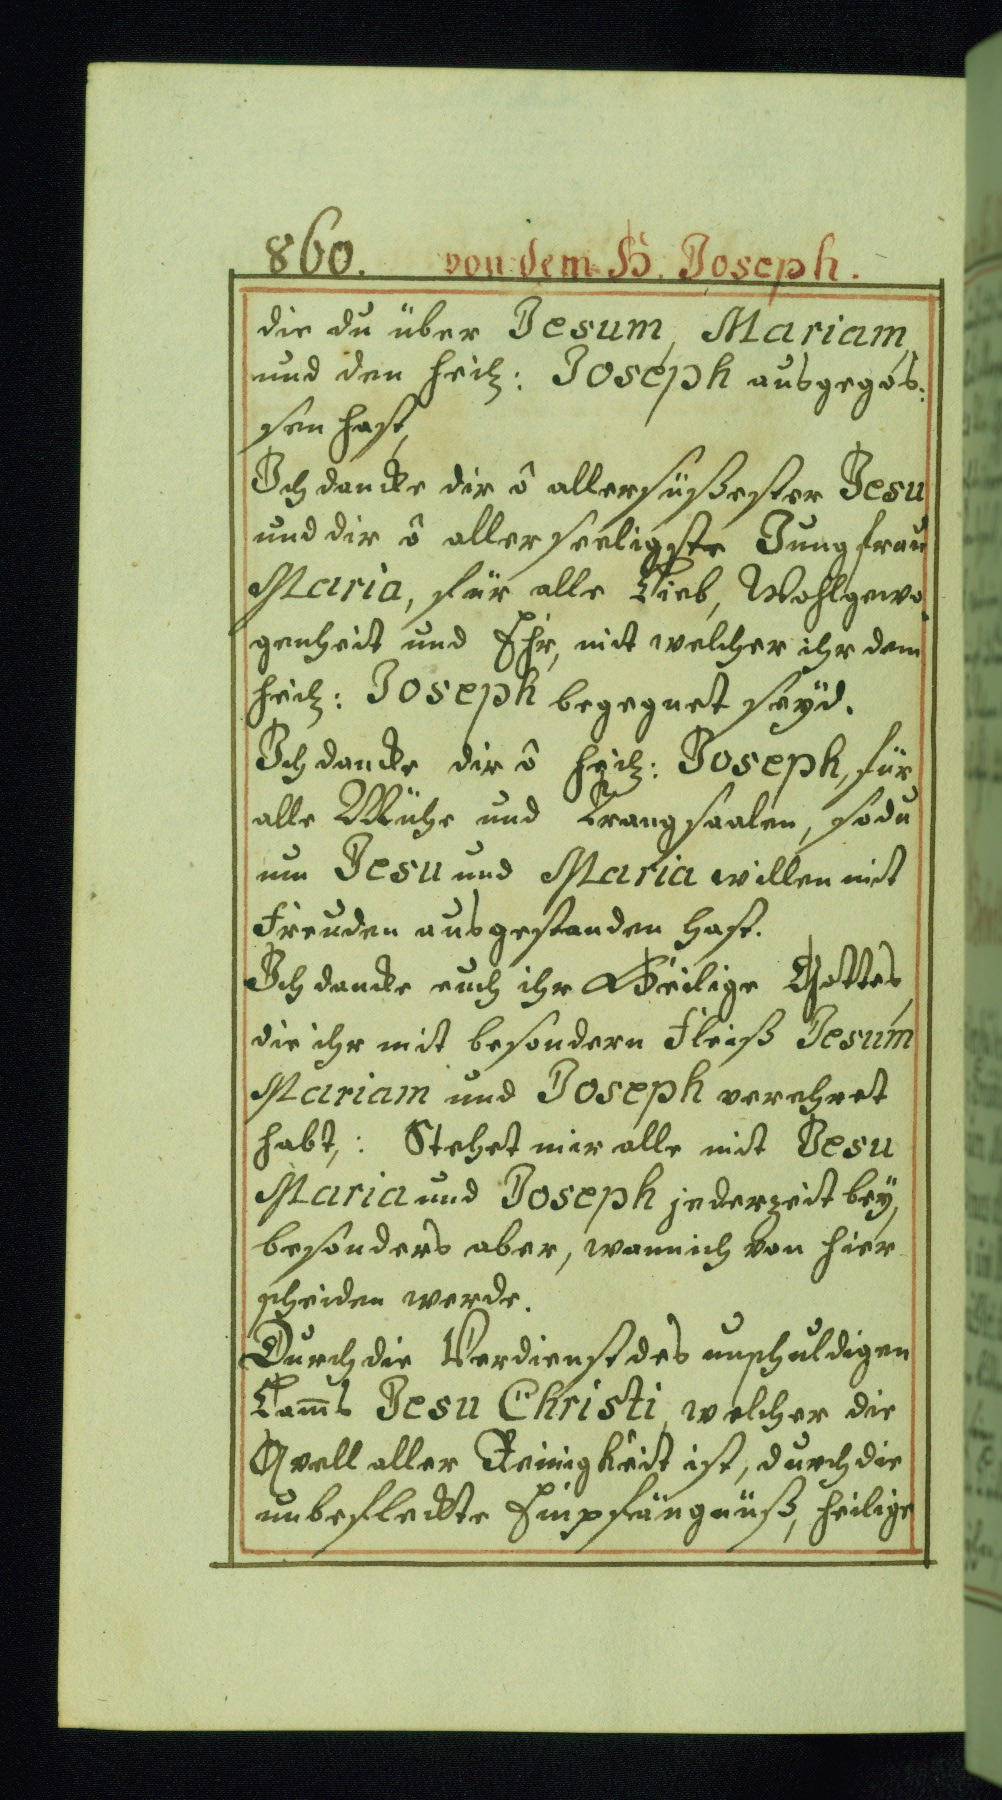 860. von dem H. Joseph.
die du über Jesum, Mariam,
und den heilg: Joseph ausgegos:
sen hast,
Ich dancke dir ô allersüßester Jesu
und dir ô allerseeligste Jungfrau
Maria, für alle Lieb, Wohlgewo
genheit und Ehr, mit welcher ihr dem
heilg: Joseph begegnet seÿd.
Ich dancke dir ô heilg: Joseph, für
alle Mühe und Trangsaalen, so du
um Jesu und Maria willen mit
Freuden ausgestanden hast.
Ich dancke euch ihr Heilige Gottes,
die ihr mit besondern Fleiß Jesum
Mariam und Joseph verehret
habt,: Stehet mir alle mit Jesu
Maria und Joseph jederzeit beÿ,
besonders aber, wann ich von hier
scheiden werde.
Durch die Verdienst des unschuldigen
Lam̄s Jesu Christi, welcher die
Quell aller Reinigkeit ist, durch die
unbefleckte Empfängnüß, heilige